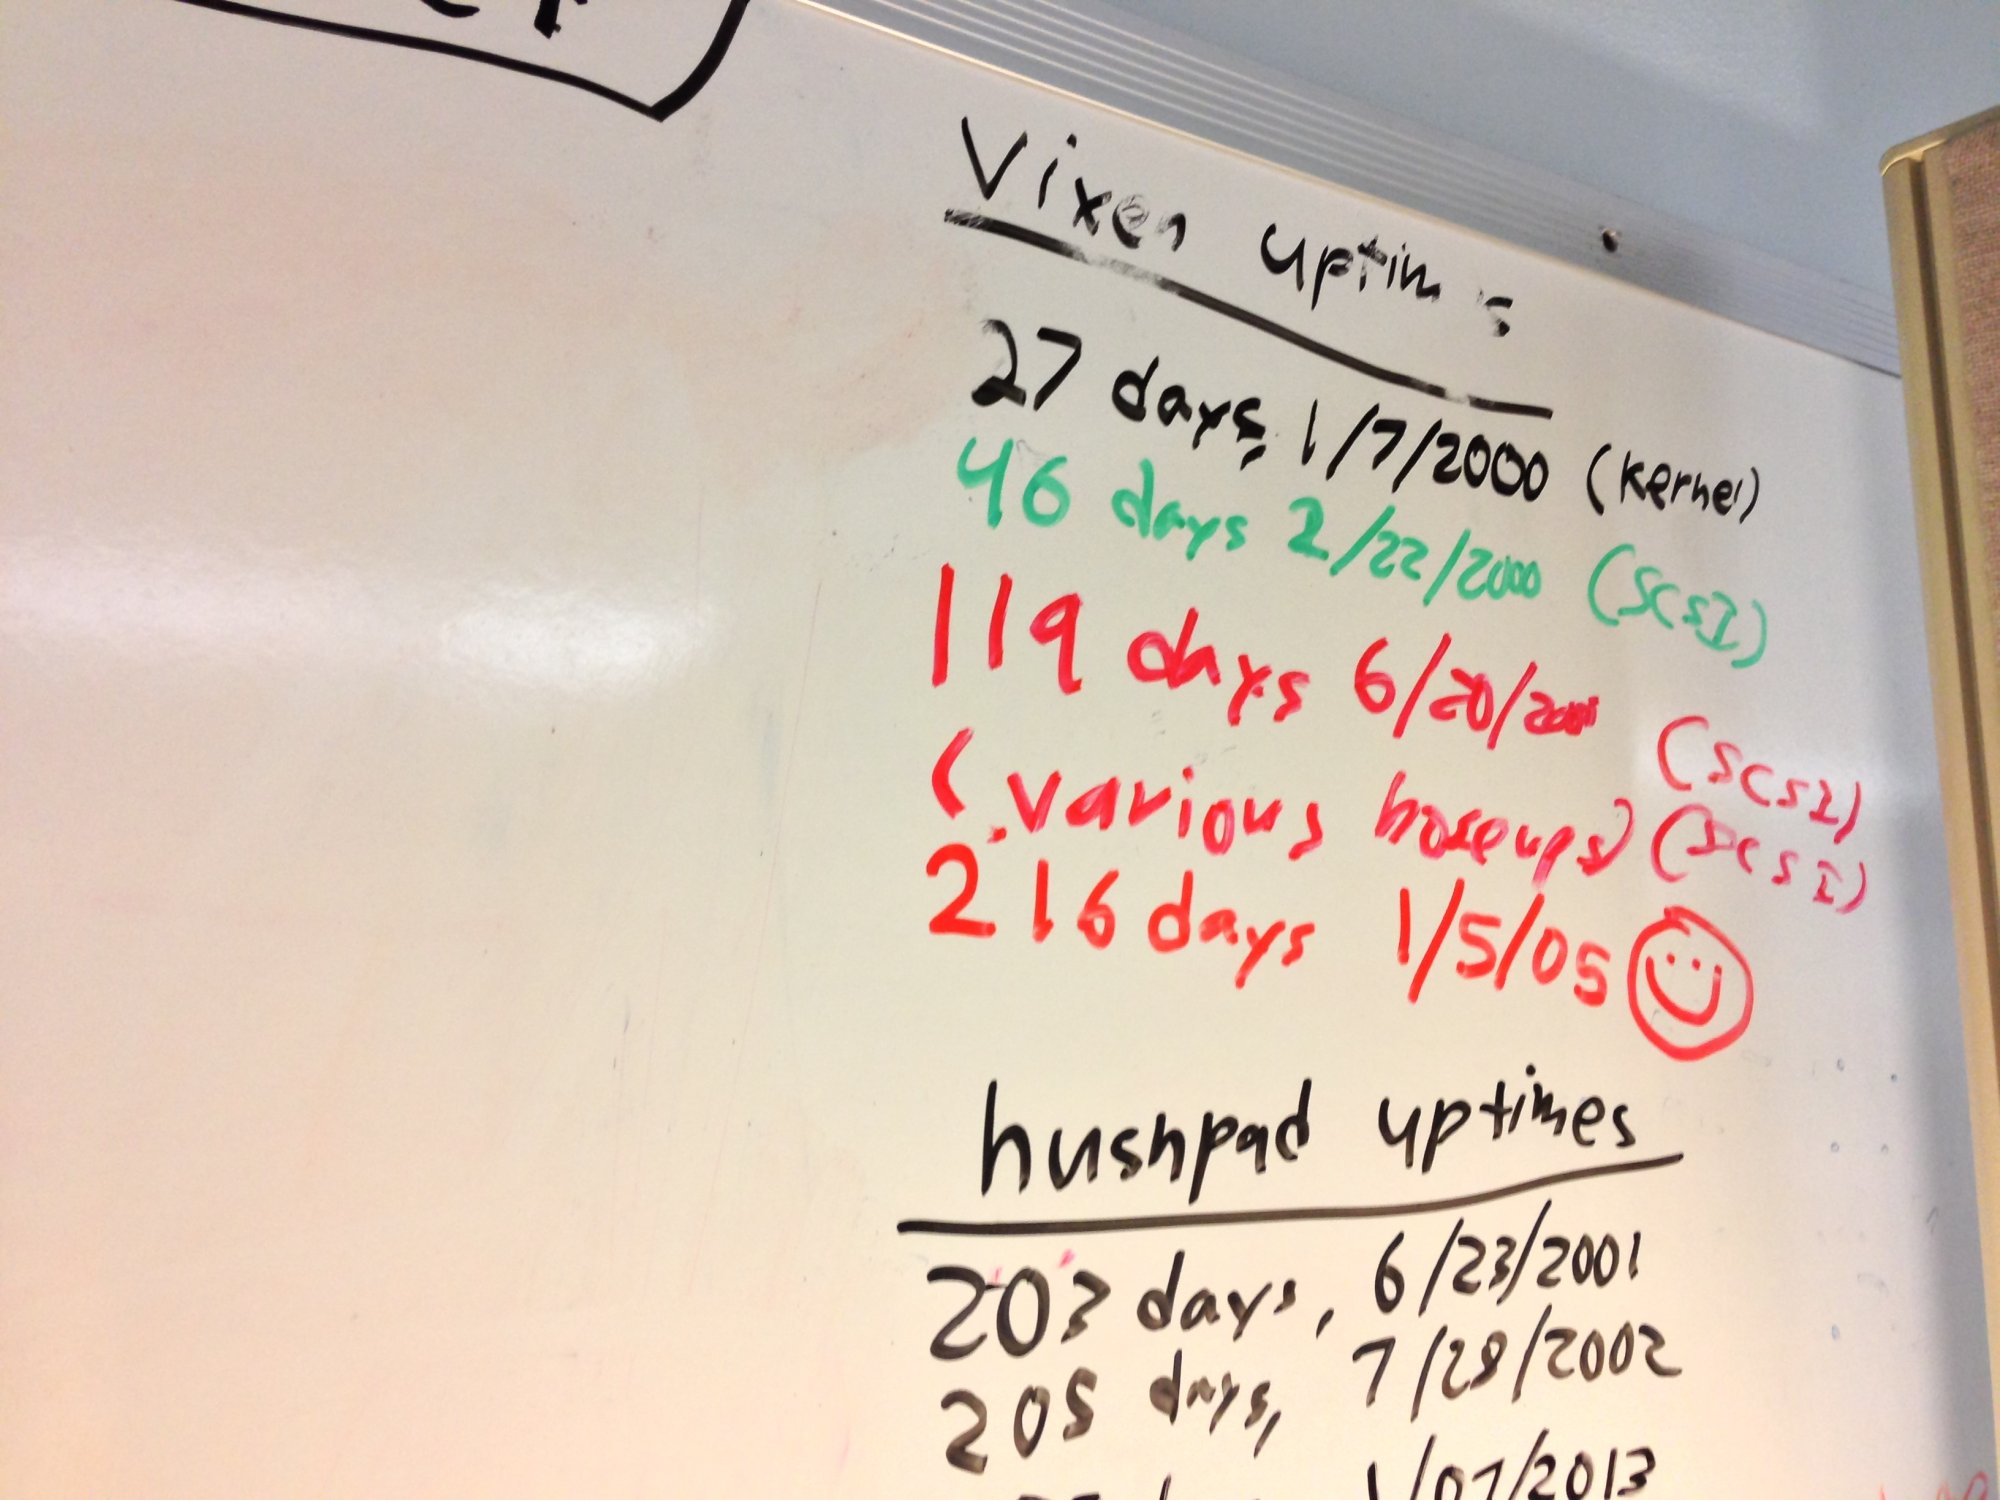 Vixen uptim s
27 days, 1/7/2000 (kernel)
46 days 2/22/2000 (SCSI)
119 days 6/20/2001 (SCSI)
(various hoseups) (SCSI)
216 days 1/5/05
hushpad uptimes
203 days, 6/23/2001
205 days, 7/28/2002
1/07/2013